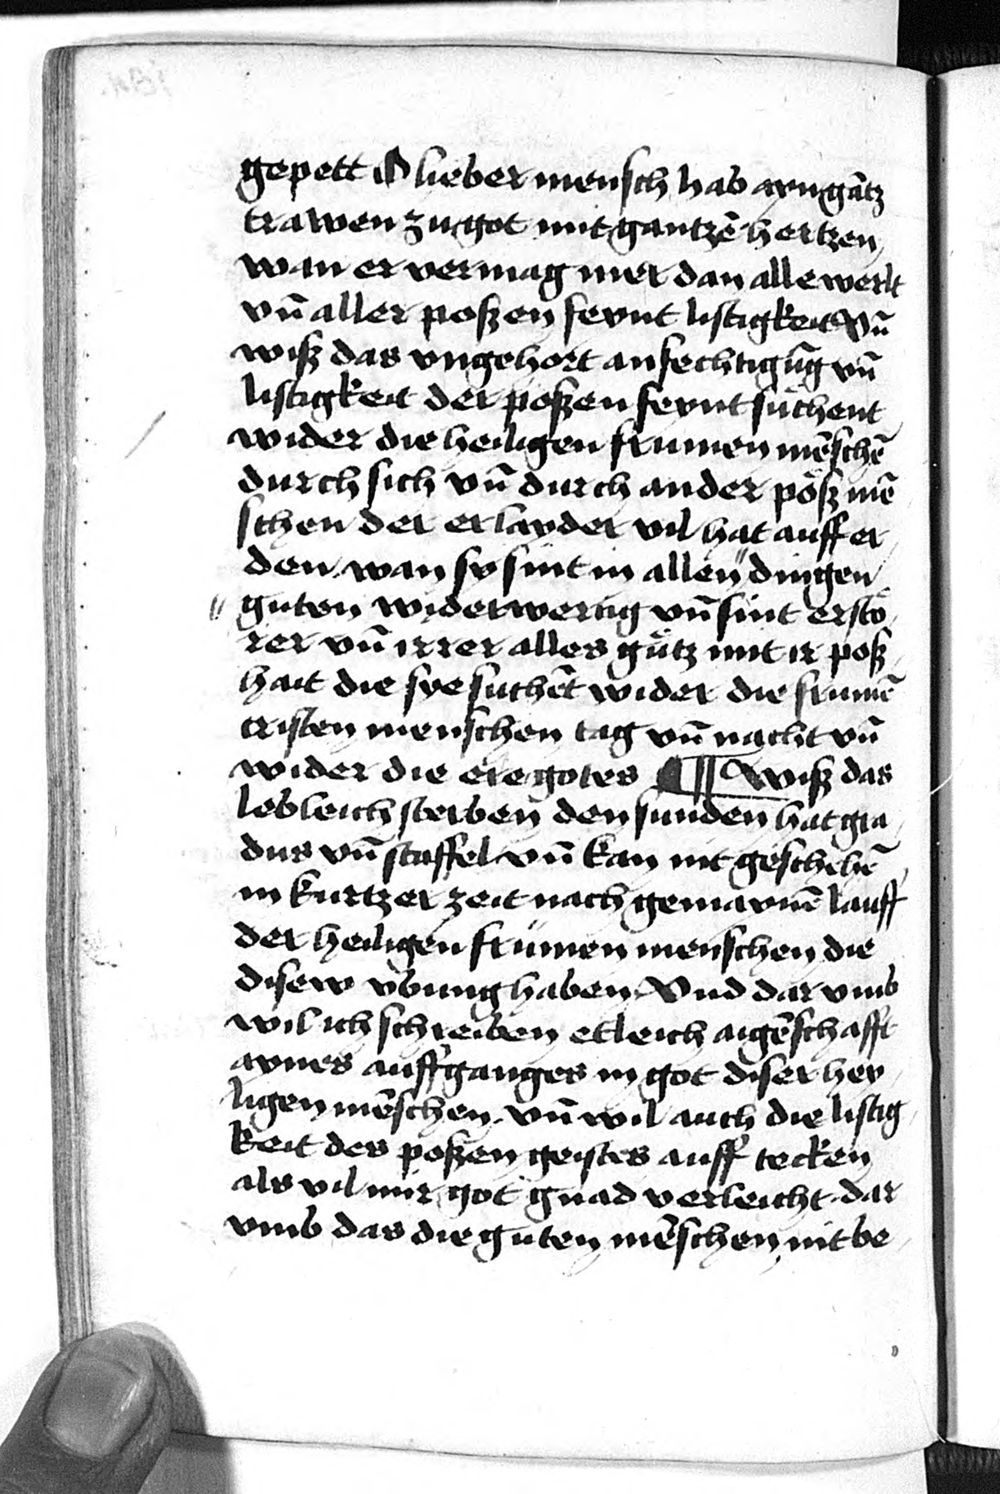 gepett O lieber mensch hab ayn gātz
trawen zu got mit gantzē hertzen
wan er vermag mer dan alle werlt
vn̄ aller poßen feynt listigkeit Vn̄
wiß das vngehort anfechtigūg vn̄
listigkeit der poßen feynt suchent
wider die heiligen frumen mēschē
durch sich vn̄ durch ander pöß mē
schen der er layder vil hat auff er
den wan sy sint in allen dingen
guten widerwertig vn̄ sint erstö
rer vn̄ irrer alles gütz mit ir poß
hait die sye suchēt wider die frumē
cristen menschen tag vn̄ nacht vn̄
wider die ere gotes ¶ Wiß das
lebleich sterben den sunden hat gra
dus vn̄ staffel vn̄ kan nit geschehē
in kurtzer zeit nach gemaynē lauff
der heiligen frümen menschen die
disew vbung haben Vnd dar vmb
wil ich schreiben etleich aigēschafft
aynes auffganges in got diser hey
ligen mēschen vn̄ wil auch die listig
keit des poßen geistes auff tecken
als vil mir got gnad verleicht dar
vmb das die guten mēschen nit be